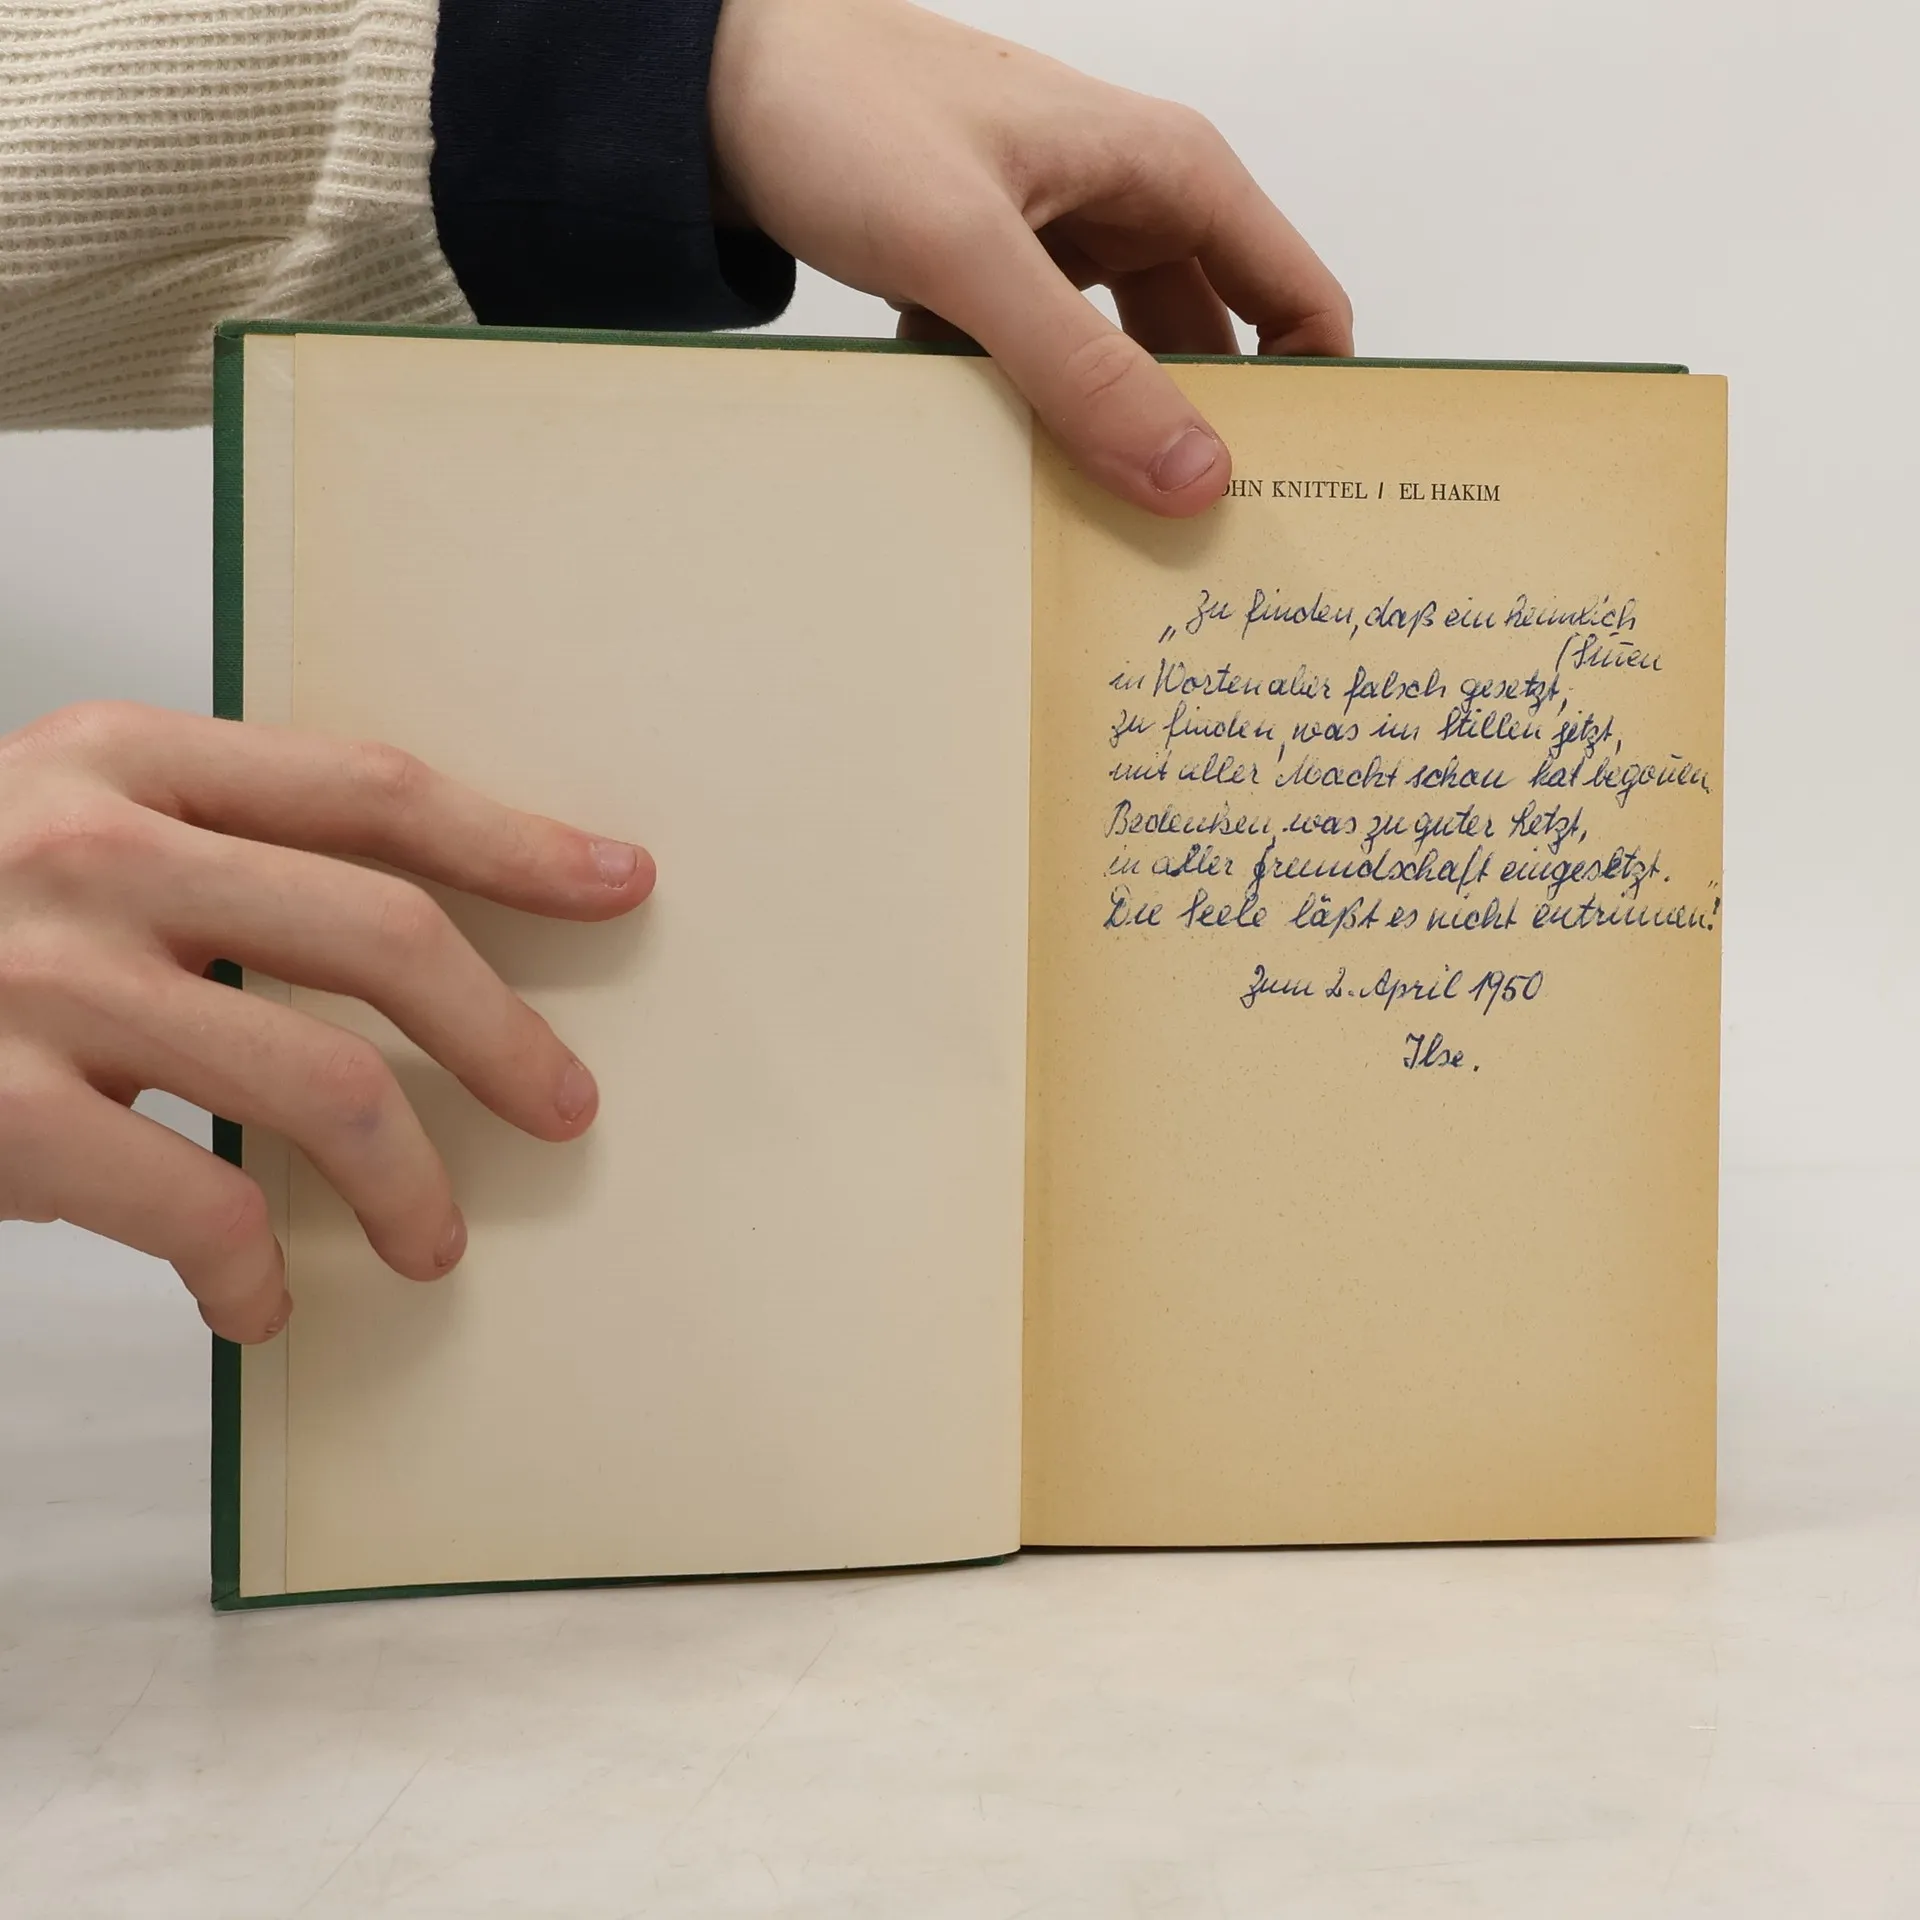 OHN KNITTEL / EL HAKIM
„Zu finden, daß ein heimlich
(Sinnen
in Worten aber falsch gesetzt,
zu finden, was im Stillen jetzt,
mit aller Macht schon hat begon̄en.
Bedenken, was zu guter Letzt,
in aller Freundschaft eingesetzt.
Die Seele läßt es nicht entrinnen!"
Zum 2. April 1950
Ilse.